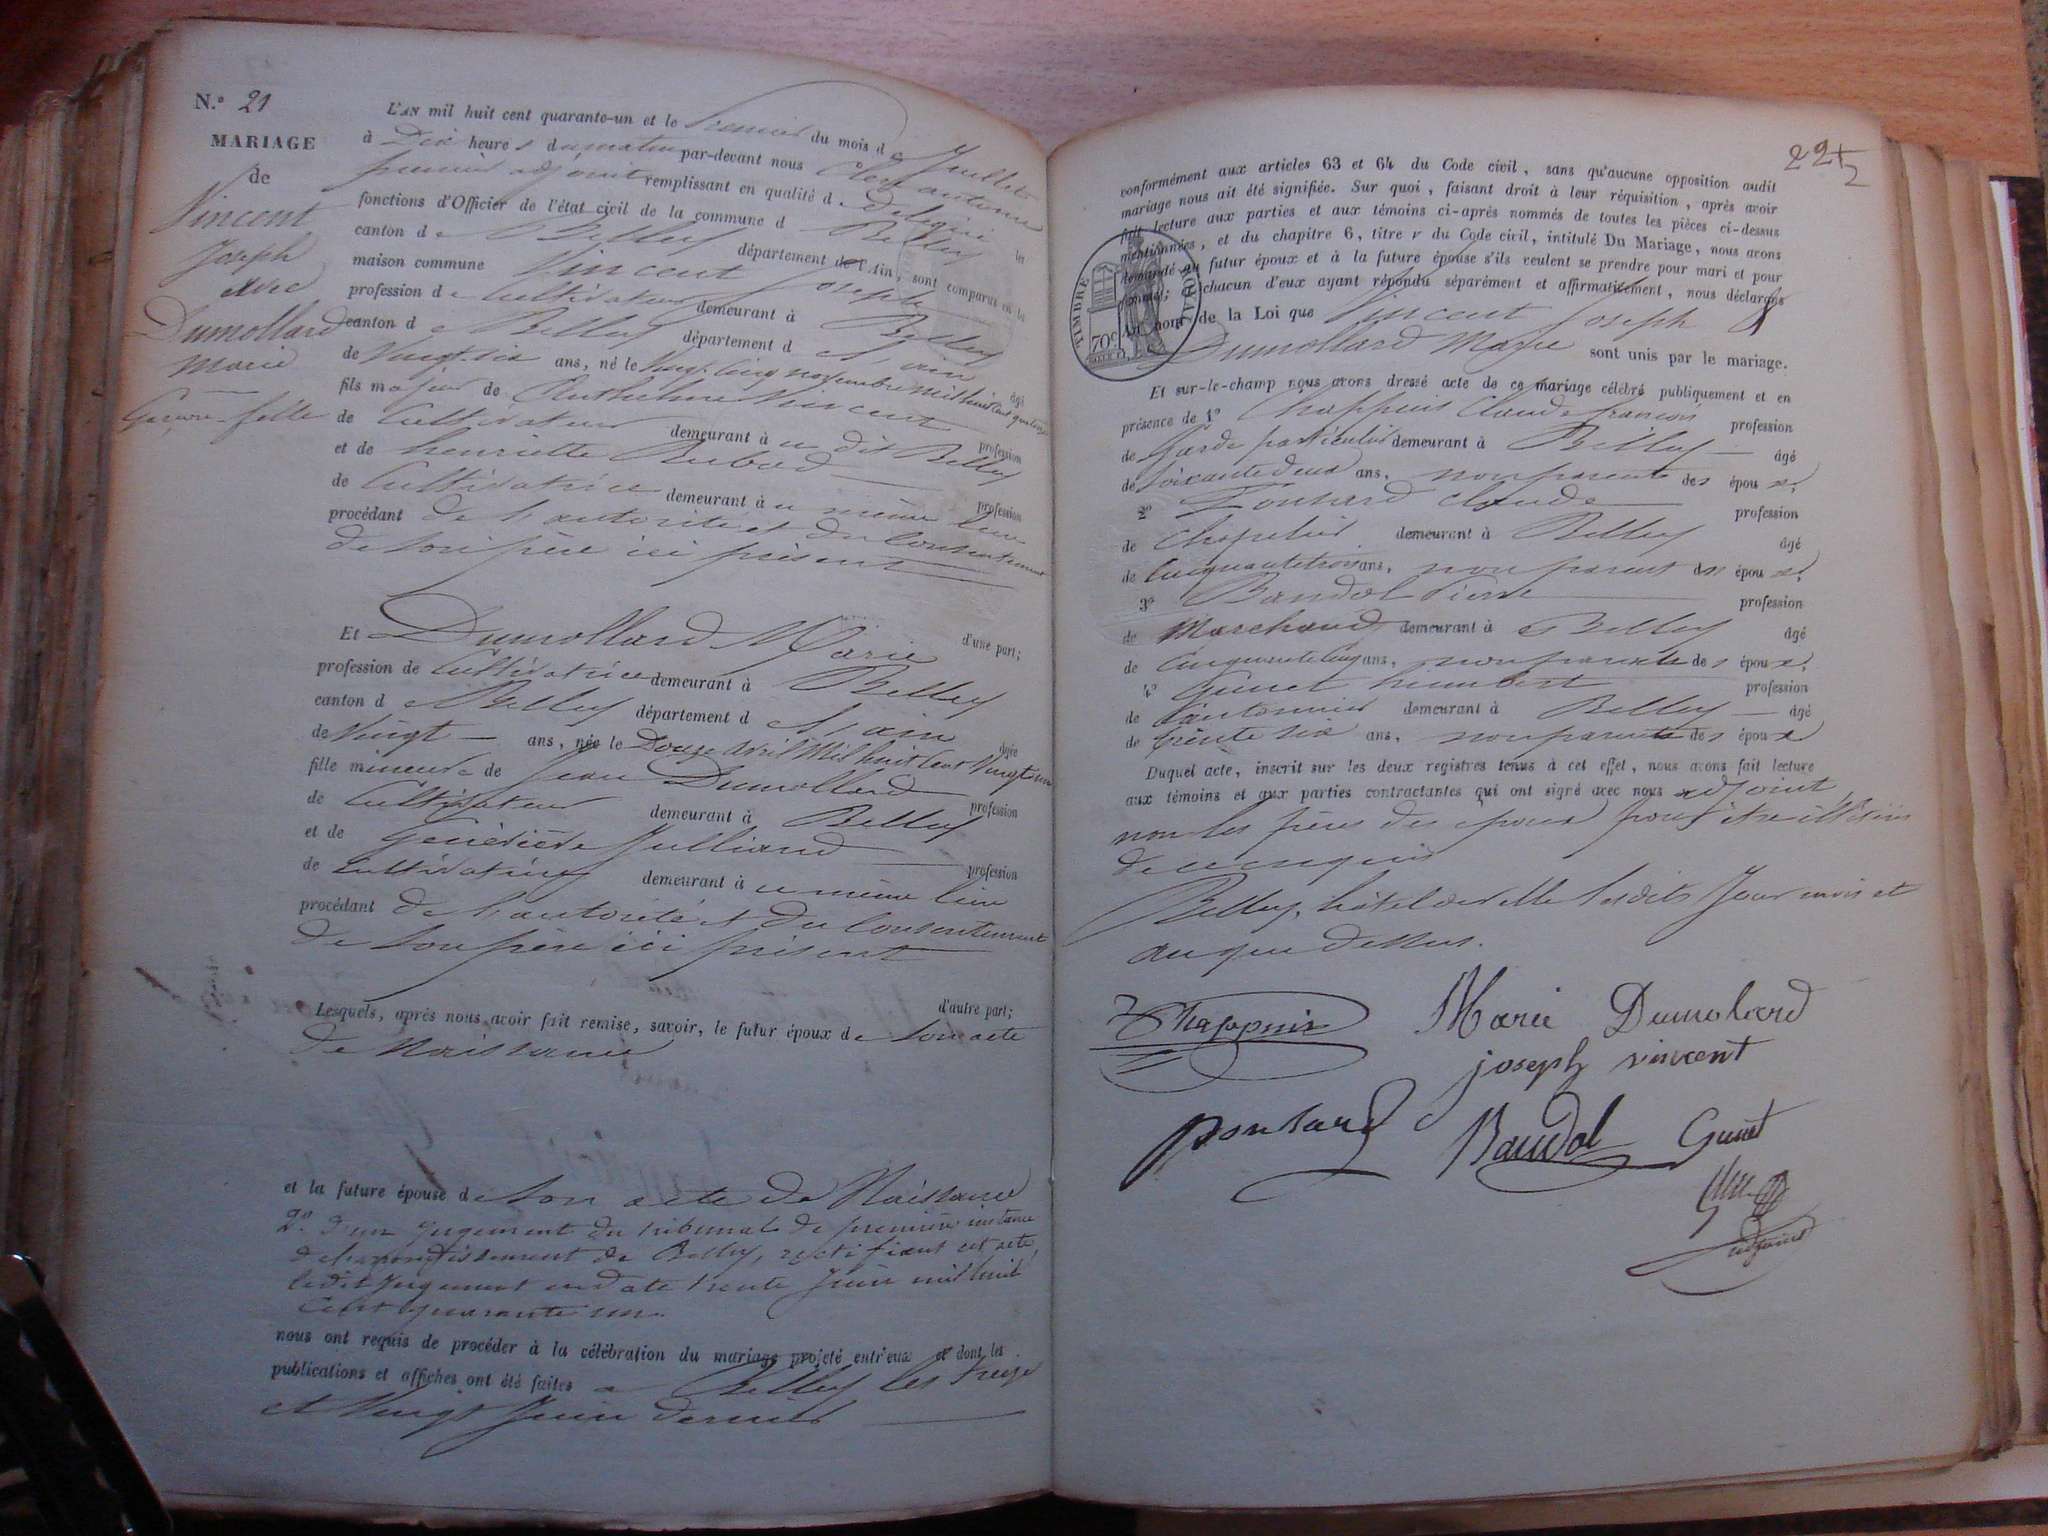 N.° 21
MARIAGE
de
Vincent
Joseph
avec
Dumollard
Marie
Garçon - fille
L'AN mil huit cent quarante-un et le Premier du mois d e Juillet
à Dix heure s du matin par-devant nous Clerc antoine
premier adjoint remplissant en qualité d e délégué les
fonctions d'Officier de l'état civil de la commune d e Belley
canton d e Belley département de l'Ain, sont comparus en la
maison commune Vincent Joseph
profession d e Cultivateur demeurant à Belley
canton d e Belley département d e l'ain âgé
de Vingt-six ans, né le Vingt Cinq novembre mil huit cent quatorze
fils majeur de Anthelme Vincent profession
de Cultivateur demeurant à au dit Belley
et de henriette Rubod profession
de Cultivatrice demeurant à au même lieu
procédant de l'autorité et du Consentement
de son père ici présent
d'une part;
Et Dumollard Marie
profession de Cultivatrice demeurant à Belley
canton d e Belley département d e l'ain âgée
de Vingt ans, née le Douze avril Mil huit Cent Vingt un
fille mineure de Jean Dumollard profession
de Cultivateur demeurant à Belley
et de Geneviève Julliand profession
de Cultivatrice demeurant à au même lieu
procédant de l'autorité et du Consentement
de son père ici présent
d'autre part;
Lesquels, après nous avoir fait remise, savoir, le futur époux de son acte
de Naissance
et la future épouse de son acte de Naissance
2° d'un jugement du tribunal de première instance
de l'arrondissement de Belley, rectifiant cet acte,
ledit jugement en date trente Juin mil huit
Cent quarante un.
nous ont requis de procéder à la célébration du mariage projeté entr'eux et dont les
publications et affiches ont été faites a Belley les treize
et Vingt Juin dernier
22
2
conformément aux articles 63 et 64 du Code civil, sans qu'aucune opposition audit
mariage nous ait été signifiée. Sur quoi, faisant droit à leur réquisition, après avoir
fait lecture aux parties et aux témoins ci-après nommés de toutes les pièces ci-dessus
mentionnées, et du chapitre 6, titre v du Code civil, intitulé Du Mariage, nous avons
demandé au futur époux et à la future épouse s'ils veulent se prendre pour mari et pour
femme; chacun d'eux ayant répondu séparément et affirmativement, nous déclarons
Au nom de la Loi que Vincent Joseph &
Dumollard Marie sont unis par le mariage.
TIMBRE ROYAL
70c
Et sur-le-champ nous avons dressé acte de ce mariage célébré publiquement et en
présence de 1° Chappuis Claude françois profession
de Garde particulier demeurant à Belley âgé
de soixante deux ans, non parent des époux.
2° Ponsard Claude profession
de Chapelier demeurant à Belley âgé
de Cinquante trois ans, non parent des époux.
3° Baudol Pierre profession
de Marchand demeurant à Belley âgé
de Cinquante Cinq ans, non parent des époux.
4° Gunet humbert profession
de Cantonnier demeurant à Belley âgé
de trente six ans, non parent des époux
Duquel acte, inscrit sur les deux registres tenus à cet effet, nous avons fait lecture
aux témoins et aux parties contractantes qui ont signé avec nous adjoint,
non les pères des époux pour être illitérés
de ce enquis
Belley, hôtel de ville lesdits Jour mois et
an que dessus.
Chappuis Marie Dumolard
joseph vincent
ponsard Baudol Gunet
adjoint